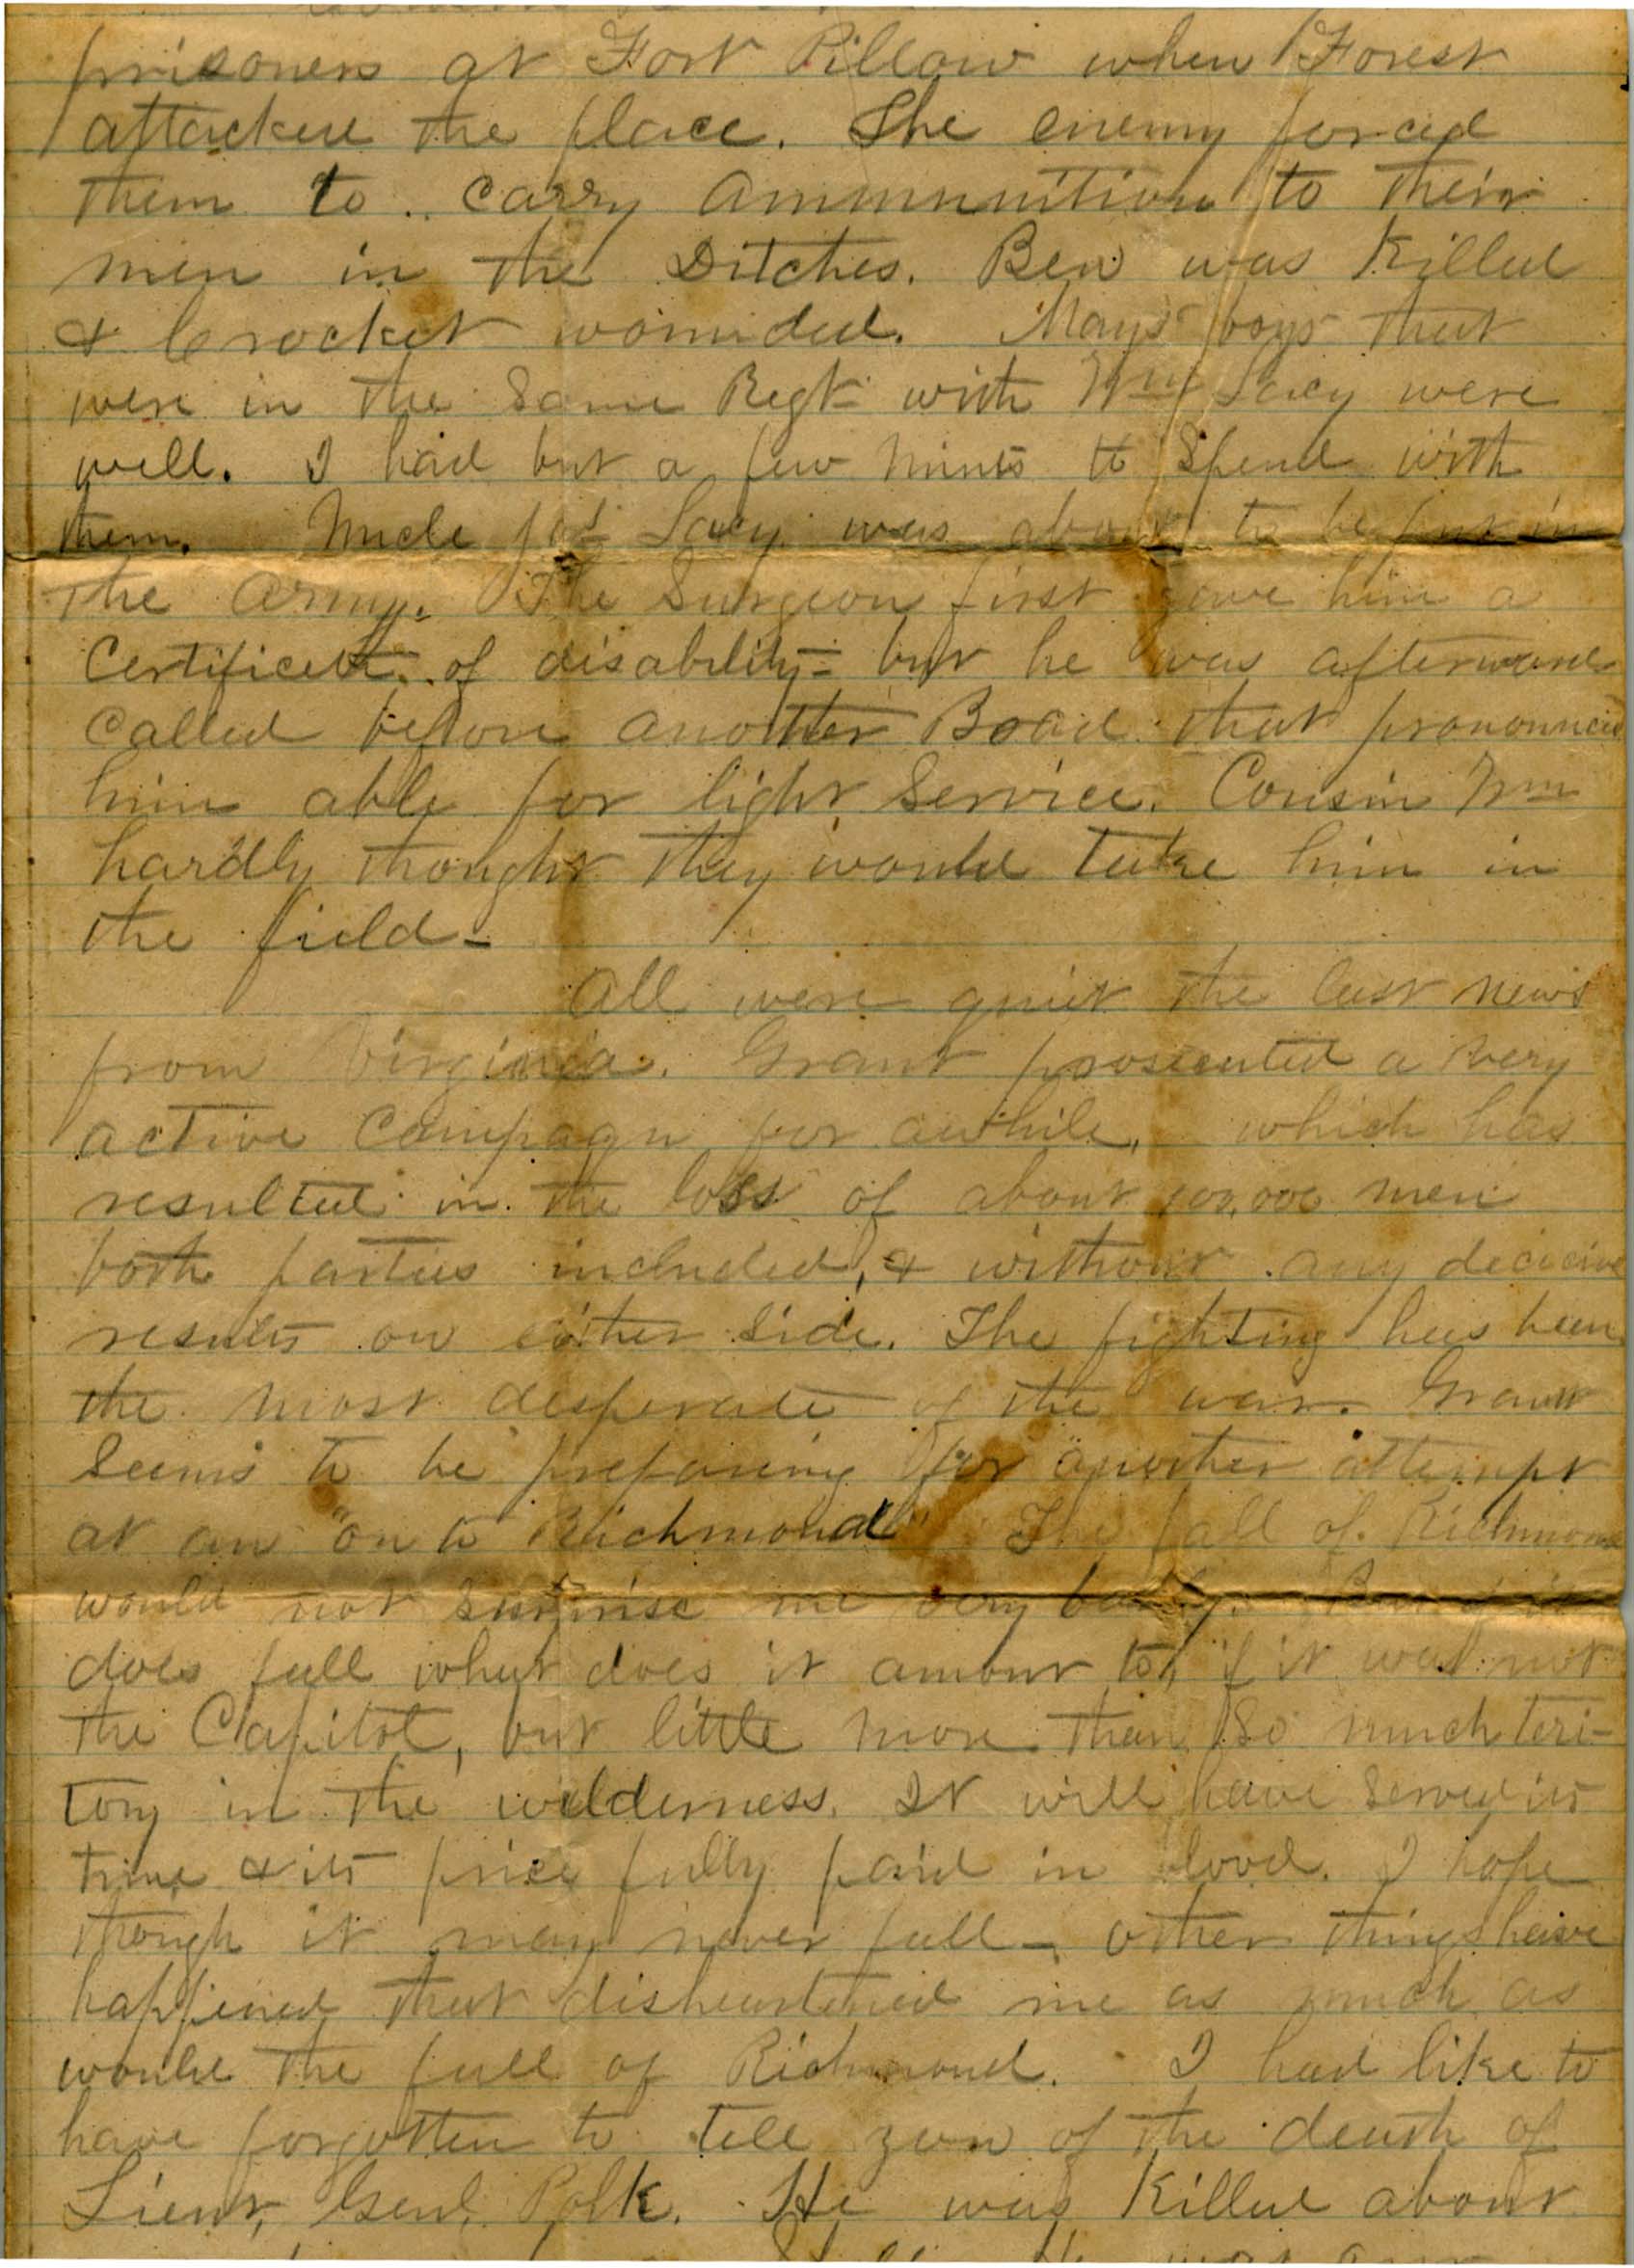 prisoners at Fort Pillow when Forest
attacked the place. The enemy forced
them to carry ammunition to their
men in the Ditches. Ben was Killed
& Crocket wounded. Mays boys that
were in the Same Regt with Wm Lacy were
well. I had but a few minits to Spend with
them. Uncle Lacy was about to be put in
the army. The Surgeon first gave him a
Certificate of disability - but he was afterward
Called before another Boad that pronounced
him able for light Service. Cousin Wm
hardly thought they would take him in
the field -
All were quiet the last news
from Virginia. Grant prosecuted a very
active Campagn for awhile, which has
resulted in the loss of about 100,000 men
both parties included, & without any decicive
results on either Side. The fighting has been
the most desperate of the war. Grant
Seems to be preparing for another attempt
at an "on to Richmond" The fall of Richmond
would not Surprise me very badly. But if it
does fall what does it amount to, if it was not
the Capitol, but little more than So much teri-
tory in the wilderness. It will have Served its
time & its price fully paid in blood. I hope
though it may never fall - other things have
happened that disheartened me as much as
would the fall of Richmond. I had like to
have forgotten to tell you of the death of
Lieut, Genl, Polk. He was Killed about